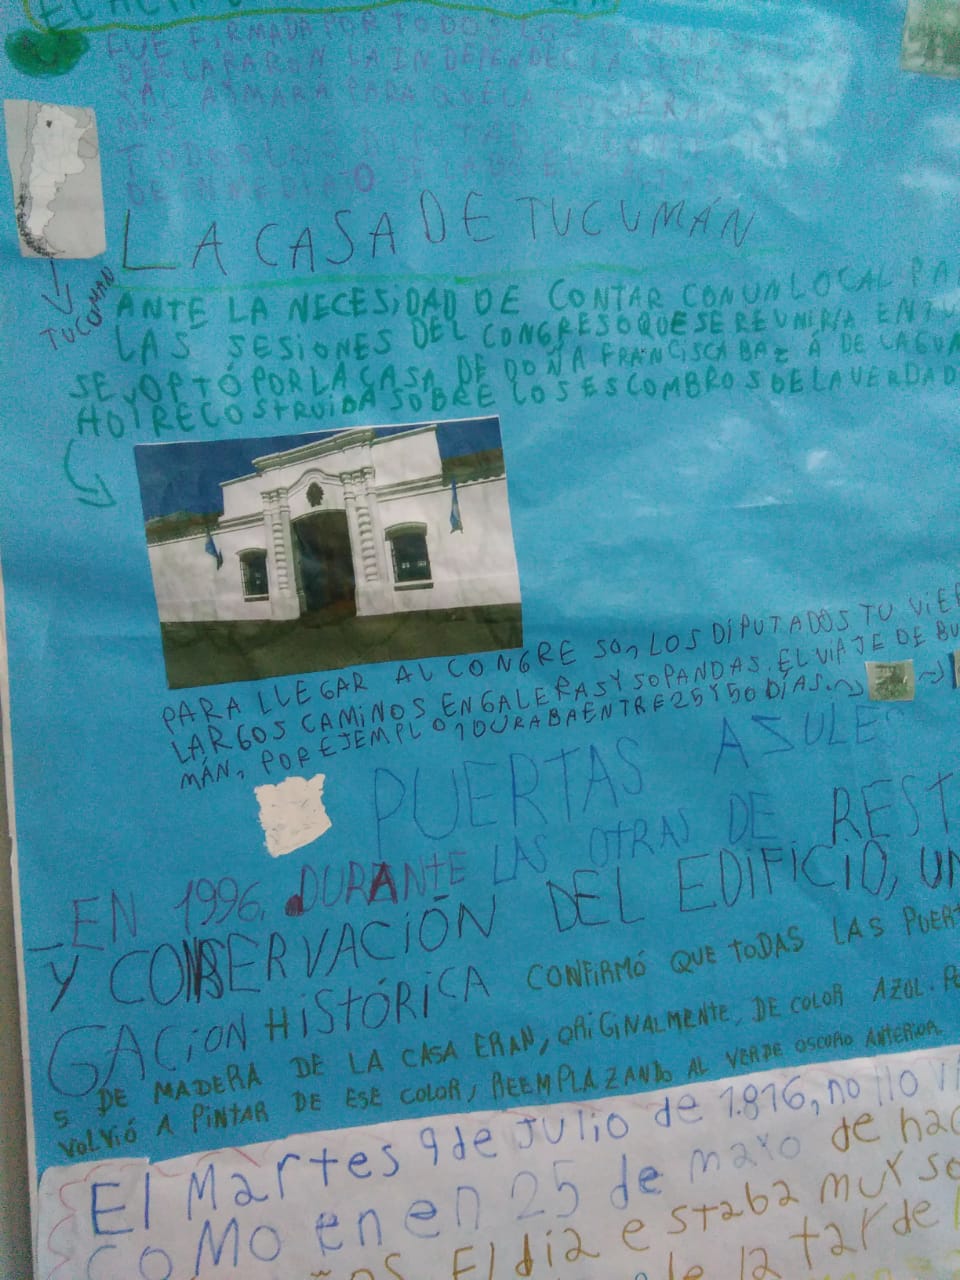 FUE FIRMADA POR TODOS LOS
DECLARARON LA INDEPENDECIA
AIMARA PARA QUE LA
MAS
TODOS LOS
DE INMEDIATO
LA CASA DE TUCUMÁN
TUCUMAN
ANTE LA NECESIDAD DE CONTAR CON UN LOCAL PA
LAS SESIONES DEL CONGRESO QUE SE REUNIRIA EN TU
SE OPTÓ POR LA CASA DE DOÑA FRANCISCA BAZ A DE LAGU
HOY RECOSTRUIDA SOBRE LOS ESCOMBROS DE LA VERDAD
PARA LLEGAR AL CONGRE SO, LOS DIPUTADOS TU VIE
LARGOS CAMINOS EN GALERAS Y SOPANDAS. EL VIAJE DE BU
MÁN, POR EJEMPLO, DURABA ENTRE 25 Y 50 DÍAS.
PUERTAS AZULE
-EN 1996, DURANTE LAS OTRAS DE REST
Y CONSERVACIÓN DEL EDIFICIO, UN
GACION HISTÓRICA CONFIRMÓ QUE TODAS LAS PUERT
S DE MADERA DE LA CASA ERAN, ORIGINALMENTE, DE COLOR AZUL. P
VOLVIÓ A PINTAR DE ESE COLOR, REEMPLAZANDO AL VERDE OSCURO ANTERIOR.
El Martes 9 de Julio de 1.816, no llo V
COMO en en 25 de mayo de hac
ños. El dia estaba muy so
de la tarde